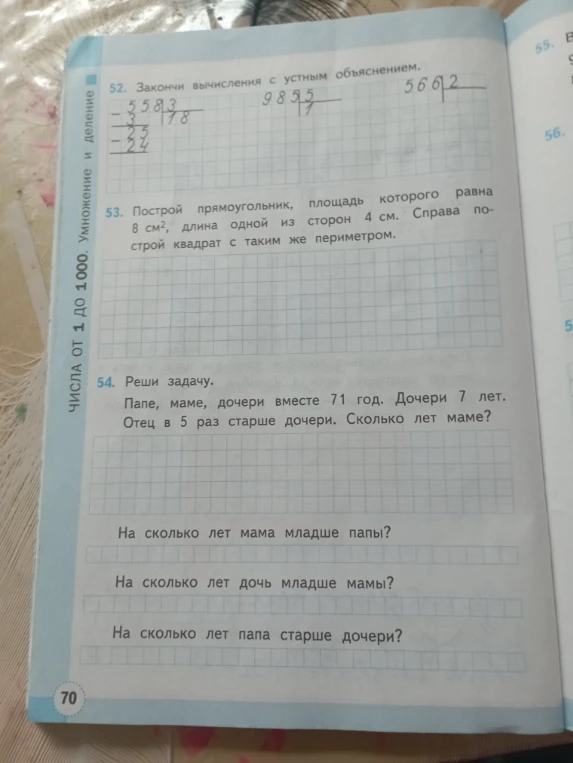 ЧИСЛА ОТ 1 ДО 1000. Умножение и деление
52. Закончи вычисления с устным объяснением.
558 3 985 5 566 2
- 3 18 1
- 25
24
53. Построй прямоугольник, площадь которого равна
8 см², длина одной из сторон 4 см. Справа по-
строй квадрат с таким же периметром.
54. Реши задачу.
Папе, маме, дочери вместе 71 год. Дочери 7 лет.
Отец в 5 раз старше дочери. Сколько лет маме?
На сколько лет мама младше папы?
На сколько лет дочь младше мамы?
На сколько лет папа старше дочери?
70
55. В
56.